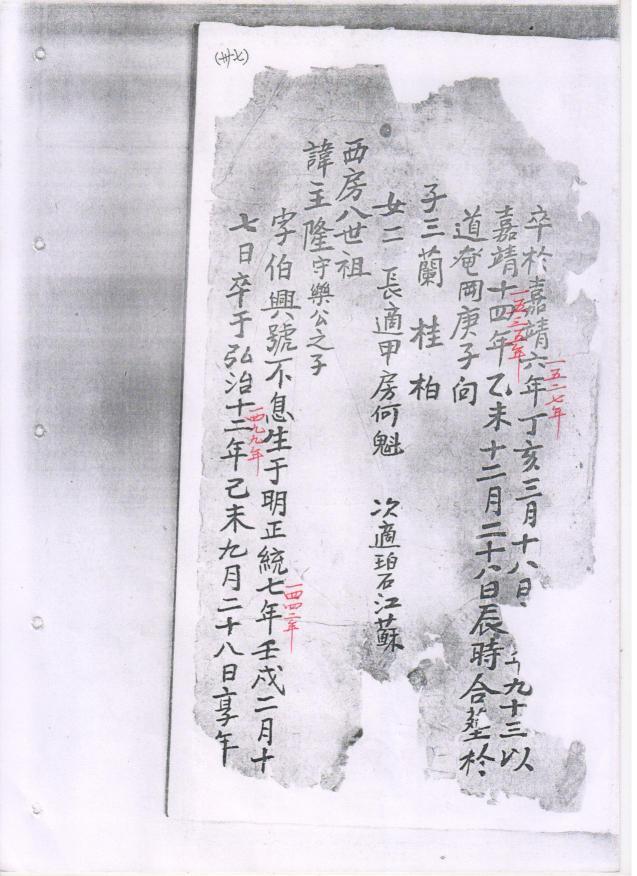 (卅七)
卒於嘉靖六年丁亥三月十八日
一五二七年
九十三以
嘉靖十四年乙未十二月二十八日辰時合塟於
一五三五年
道奄岡庚子向
子三 蘭 桂 柏
女二 長適甲房何魁 次適碧江蘇
西房八世祖
諱主隆守樂公之子
字伯興號不息生于明正統七年壬戌二月十
一四四二年
七日卒于弘治十二年己未九月二十八日享年
一四九九年